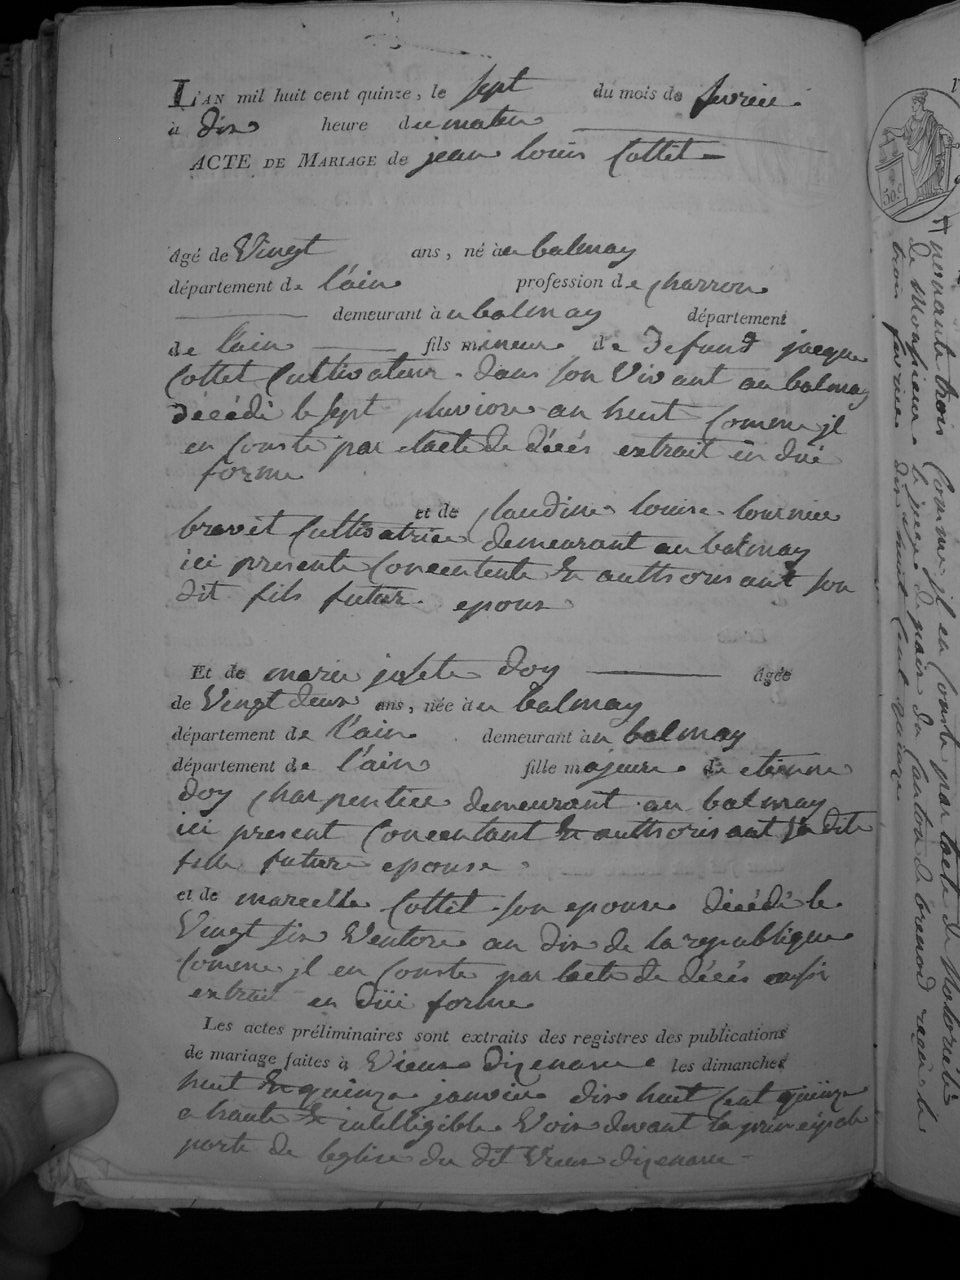 L'AN mil huit cent quinze, le sept du mois de fevrier
à dix heure du matin
ACTE DE MARIAGE de jean louis Cottet
âgé de Vingt ans, né à au balmay
département de l'ain profession de charron
demeurant à au balmay département
de l'ain fils mineur de Defunt jacque
Cottet Cultivateur dans son Vivant au balmay
décédé le sept pluviose an huit Comme jl
en Conste par l'acte de décés extrait en duë
forme
et de Claudine louise tournier
brevet Cultivatrice demeurant au balmay
ici presente Concentente et authorisant son
dit fils futur epoux
Et de marie josete doy âgée
de Vingt deux ans, née à au balmay
département de l'ain demeurant à au balmay
département de l'ain fille majeure de etienne
doy Charpentier demeurant au balmay
ici present Concentant et authorisant sa dite
fille future epouse
et de marcelle Cottet son epouse décédé le
Vingt six Ventose an dix de la republique
Comme jl en Conste par l'acte de décés
extrait en düe forme
Les actes préliminaires sont extraits des registres des publications
de mariage faites à Vieux dizenave les dimanches
huit et quinze janvier dix huit Cent quinze
a haute et intelligible Voix devant la principale
porte de leglise du dit Vieux dizenave
50 c.
nonante trois Comme jl en Conste par l'acte de Notorieté
de Monsieur le juge de paix du Canton de brenod reçu le
trois fevrier dix huit Cent quinze